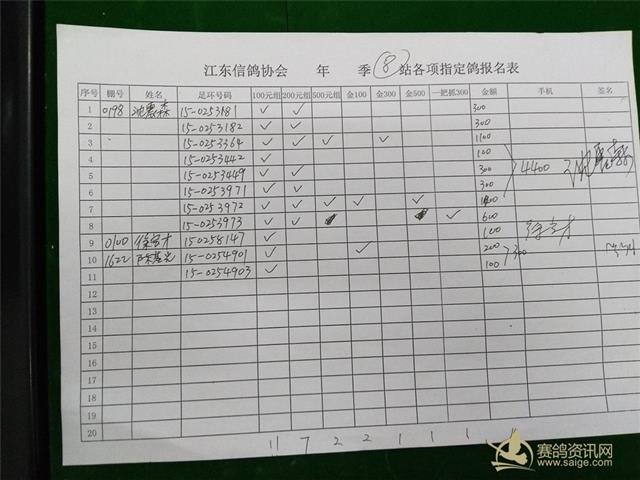 江东信鸽协会 年 季 ⑧ 站各项指定鸽报名表
序号 棚号 姓名 足环号码 100元组 200元组 500元组 金100 金300 金500 一把抓300 金额 手机 签名
1 0198 15-0253181 ✓ ✓ 300
2 15-0253182 ✓ ✓ 300
3 15-0253364 ✓ ✓ ✓ ✓ 1100
4 15-0253442 ✓ 100
5 15-0253449 ✓ ✓ 300 4400
6 15-0253971 ✓ ✓ 300
7 15-0253972 ✓ ✓ ✓ ✓ ✓
8 15-0253973 ✓ ✓ ✓ 600
9 0100 15-0258147 ✓ 100
10 1622 15-0254901 ✓ ✓ 200 300
11 15-0254903 ✓ 100
12
13
14
15
16
17
18
19
20
11 7 2 2 1 1 1
赛鸽资讯网
www.saige.com